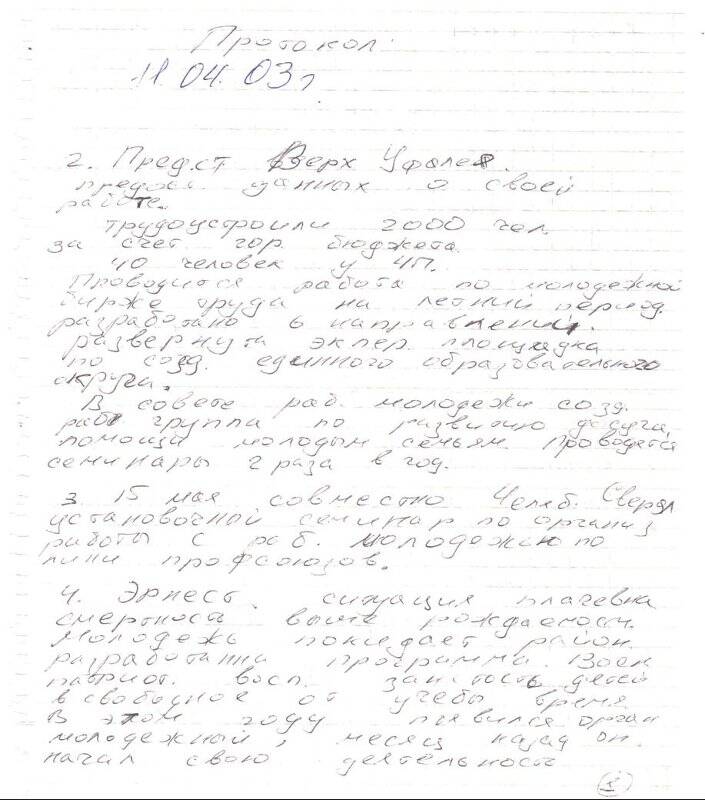 Протокол.
11.04.03г
2. Предст Верх Уфалея.
предост. данных о своей
работе.
трудоустроили 2000 чел.
за счет гор. бюджета.
40 человек у ЧП.
Проводится работа по молодежной
бирже труда на летний период.
разработано 6 направлений.
развернута экпер. площадка
по созд. единного образовательного
округа.
В совете раб. молодежи созд.
раб группа по развитию досуга,
помощи молодым семьям. Проводятся
семинары 2 раза в год.
3 15 мая совместно Челяб. Свердл
установочной семинар по организ
работы с раб. молодежью по
лини профсоюзов.
4. Эрнест. ситуация плачевна
смертность выше рождаемости.
Молодежь покидает район.
разработанна программа. Воен
патриот. восп. занятость детей
в свободное от учебы время
В этом году появился орган
молодежный, месяц назад он.
начал свою деятельность